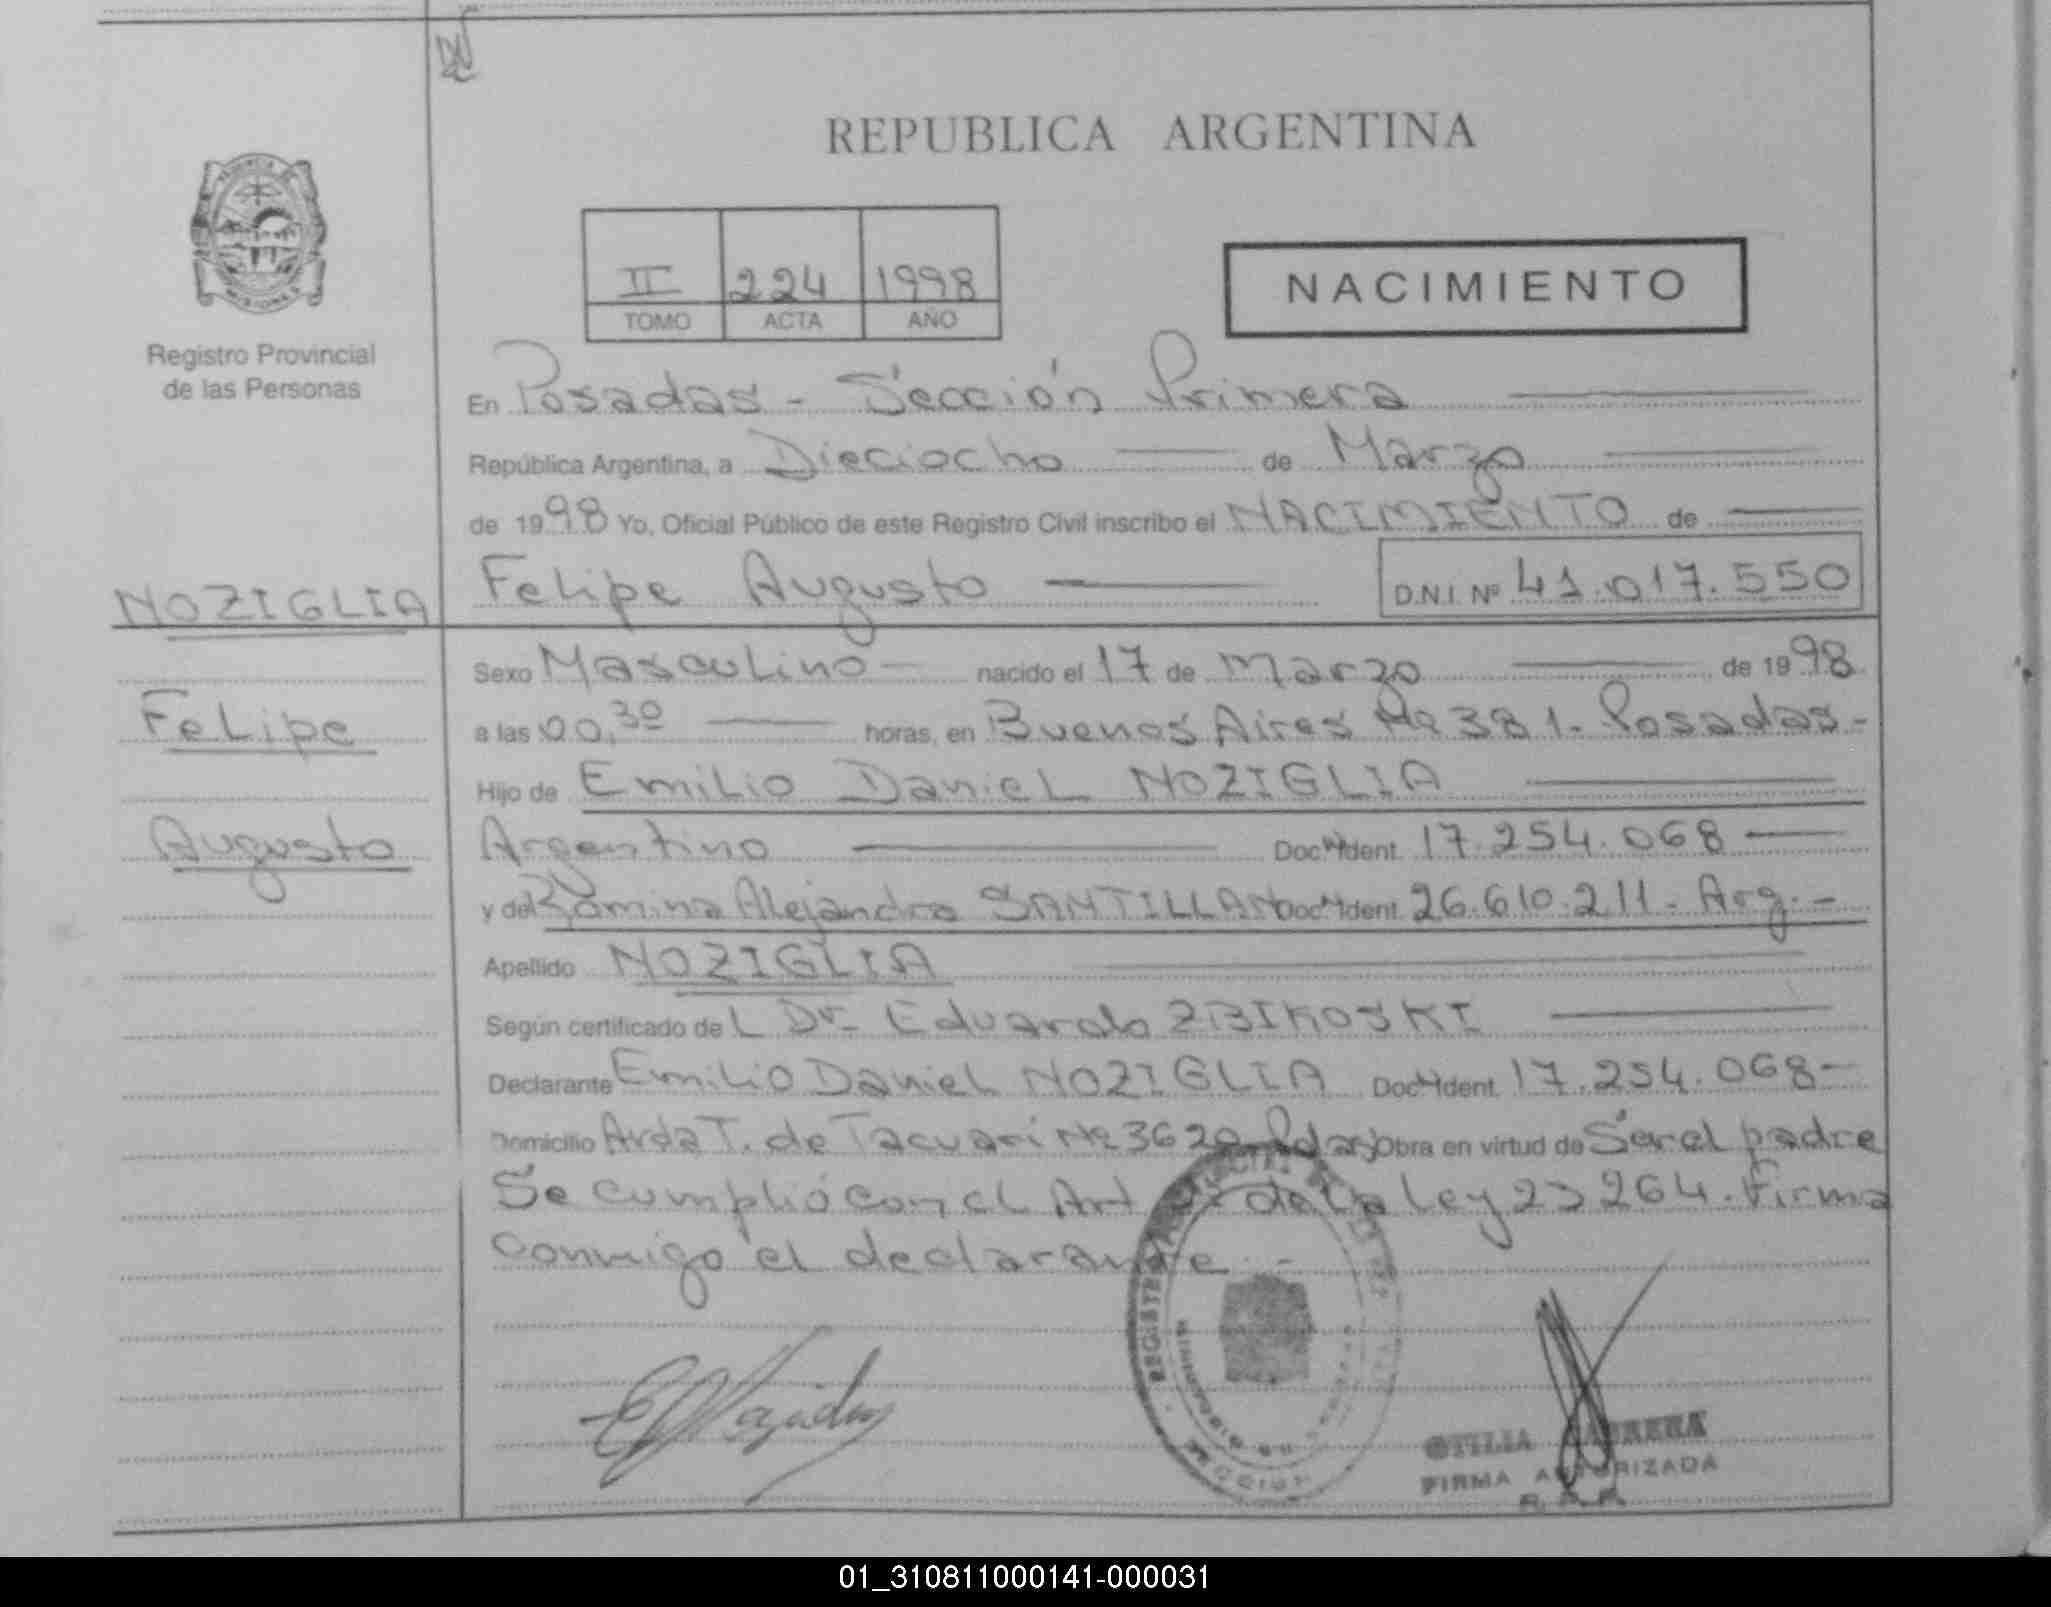 REPUBLICA ARGENTINA
PROVINCIA DE
MISIONES
Registro Provincial
de las Personas
II 224 1998
TOMO ACTA AÑO
NACIMIENTO
En Posadas - Sección Primera
República Argentina, a Dieciocho de Marzo
de 1998 Yo, Oficial Público de este Registro Civil inscribo el NACIMIENTO de
NOZIGLIA
Felipe Augusto D.N.I. Nº 41.017.550
Sexo Masculino nacido el 17 de Marzo de 1998
Felipe
a las 00,30 horas, en Buenos Aires Nº 381 - Posadas -
Hijo de Emilio Daniel NOZIGLIA
Augusto
Argentino Doc. Ident. 17.254.068
y de Alejandra SANTILLAN Doc. Ident. 26.610.211 - Arg. -
Apellido NOZIGLIA
Según certificado de L Dr. Eduardo ZBIKOSKI
Declarante Emilio Daniel NOZIGLIA Doc. Ident. 17.254.068 -
Domicilio Avda T. de Tacuari Nº 3620 Obra en virtud de Ser el padre
Se cumplió con el Art de la Ley 23264. Firma
conmigo el declarante -
OTILIA CABRERA
FIRMA AUTORIZADA
SECCION
01_310811000141-000031